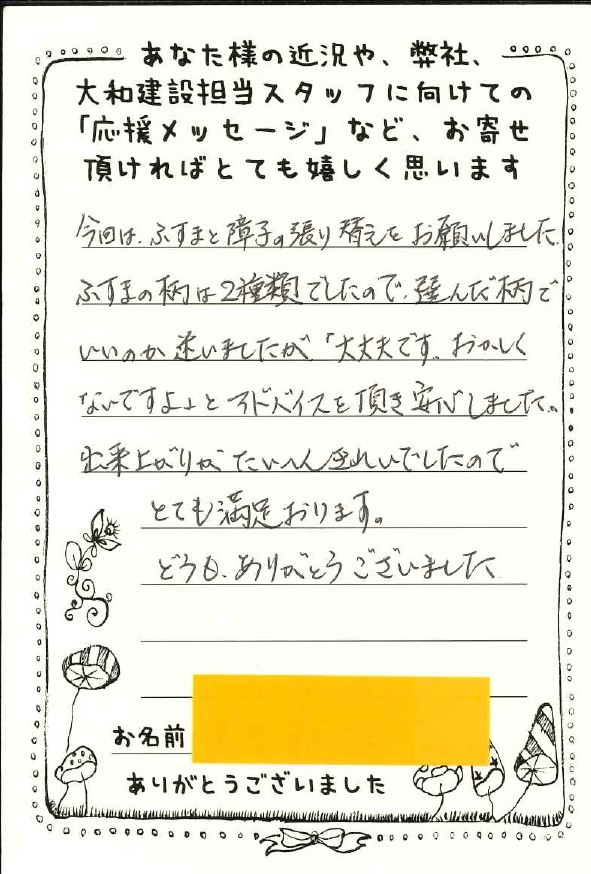 あなた様の近況や、弊社、
大和建設担当スタッフに向けての
「応援メッセージ」など、お寄せ
頂ければとても嬉しく思います
今回は、ふすまと障子の張り替えをお願いしました。
ふすまの柄は2種類でしたので、選んだ柄で
いいのか迷いましたが「大丈夫です。おかしく
ないですよ」とアドバイスを頂き安心しました。
出来上がりがたいへんきれいでしたので
とても満足おります。
どうも、ありがとうございました
お名前
ありがとうございました